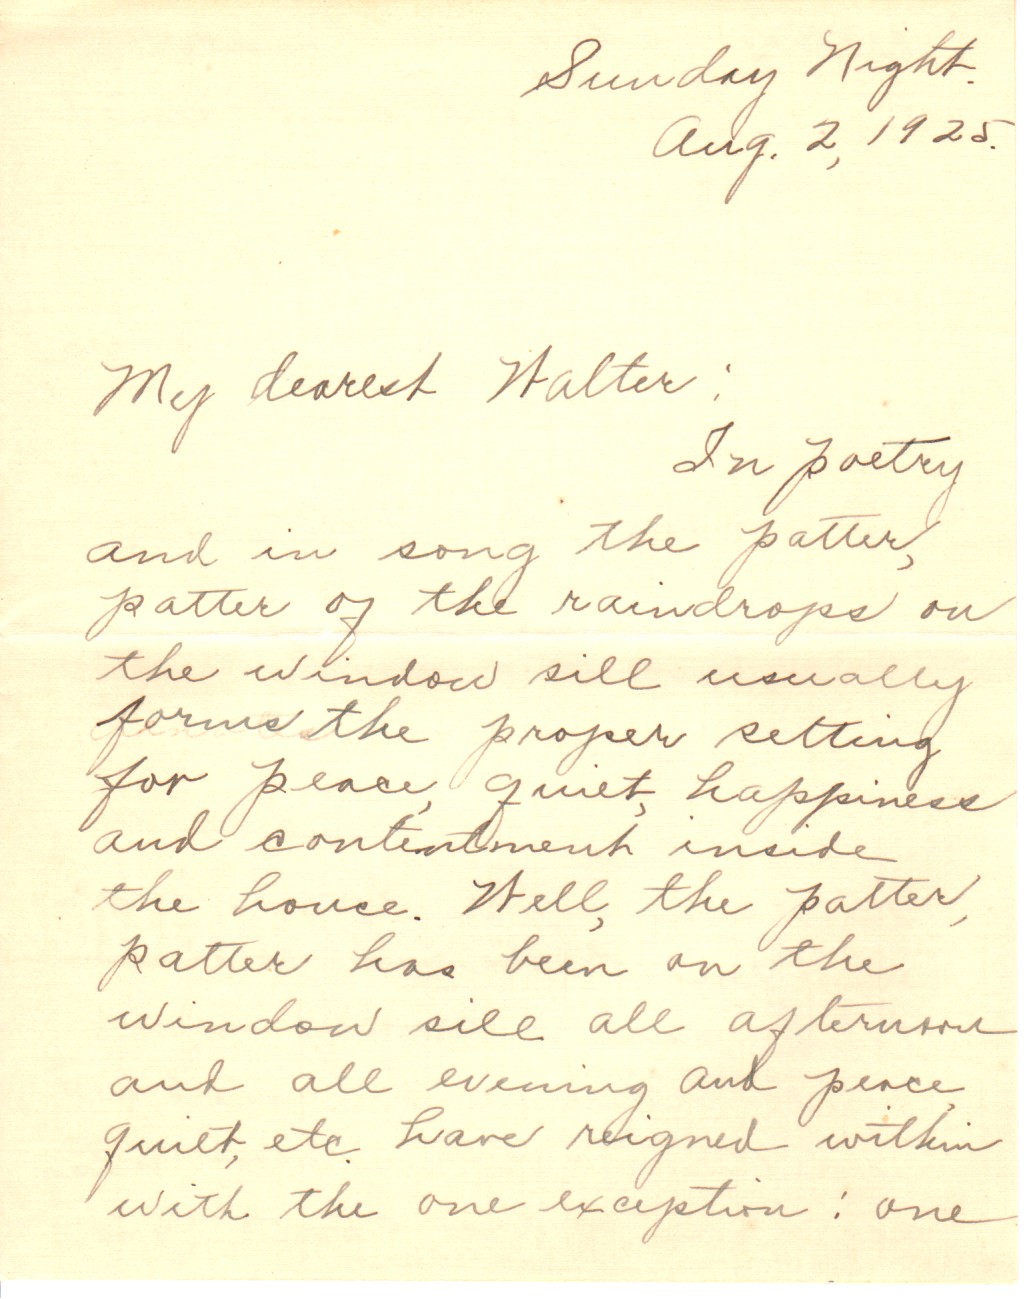 Sunday Night.
Aug. 2, 1925.
My dearest Walter:
In poetry
and in song the patter,
patter of the raindrops on
the window sill usually
forms the proper setting
for peace, quiet, happiness
and contentment inside
the house. Well, the patter,
patter has been on the
window sill all afternoon
and all evening and peace,
quiet, etc. have reigned within
with the one exception: one